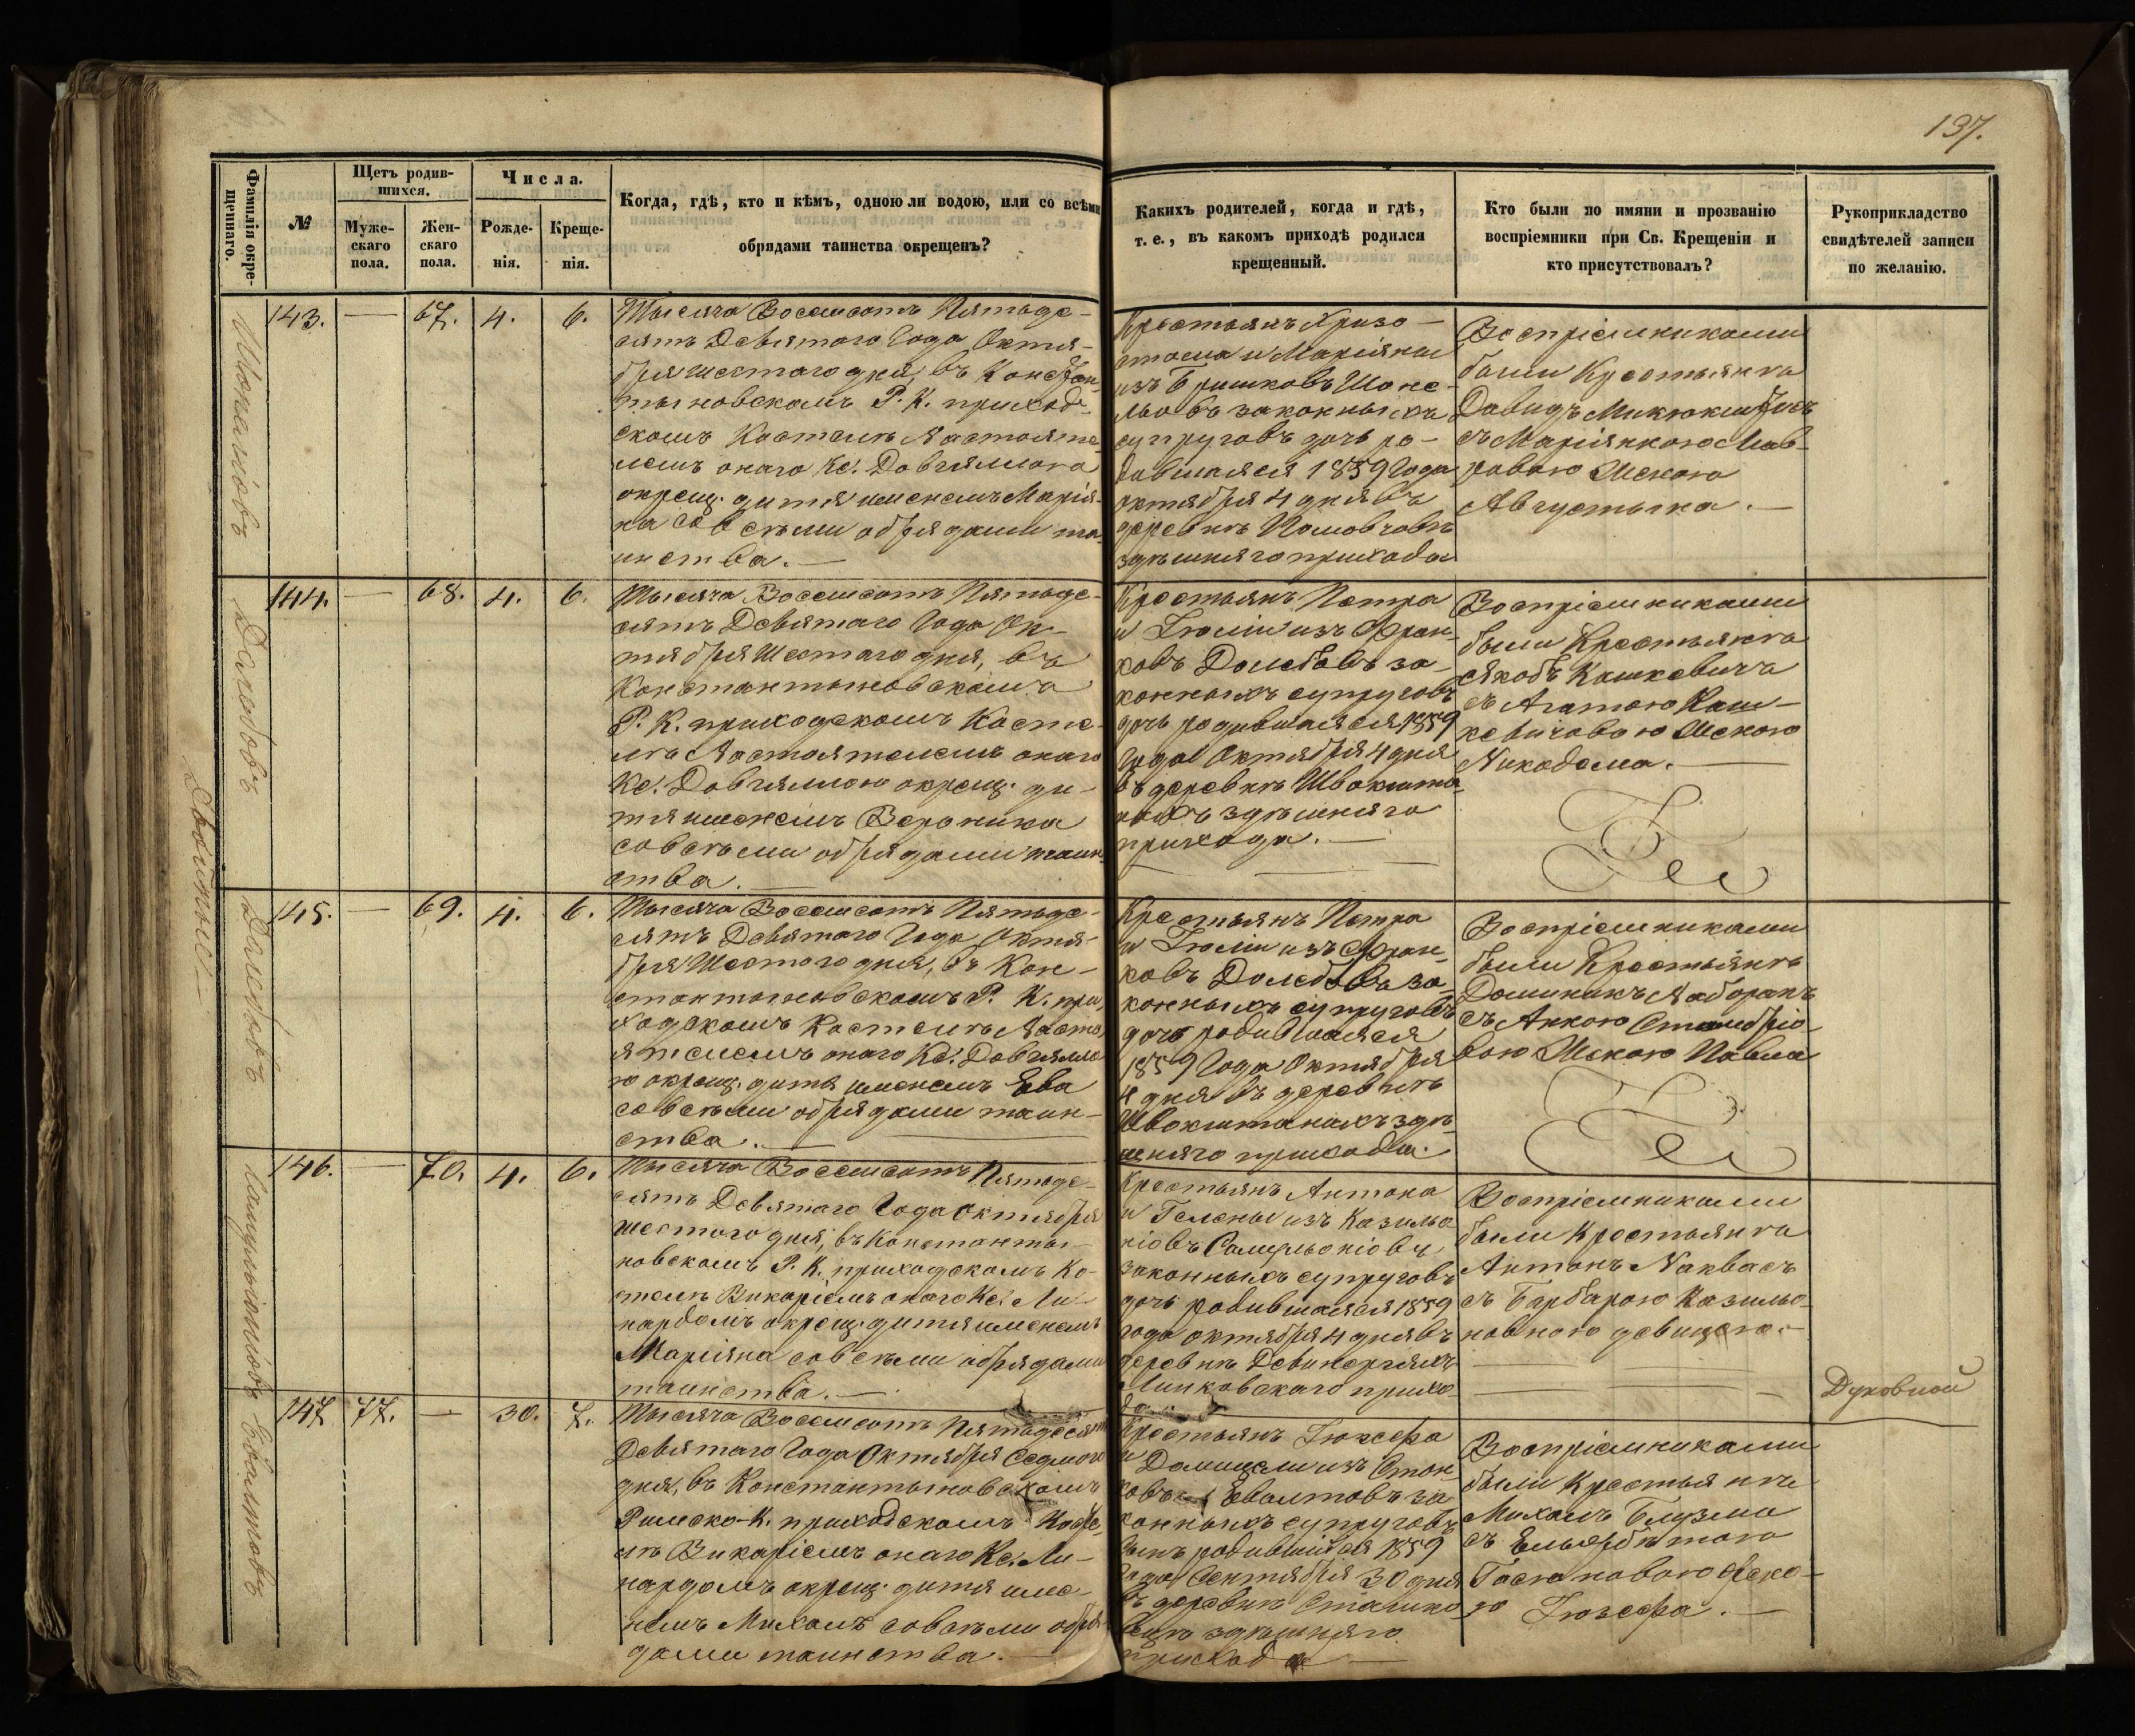 137.
Фамилія окре-
щеннаго.
№
Щетъ родив-
шихся.
Муже-
скаго
пола.
Жен-
скаго
пола.
Числа.
Рожде-
нія.
Креще-
нія.
Когда, гдѣ, кто и кѣмъ, одною ли водою, или со всѣми
обрядами таинства окрещенъ?
Какихъ родителей, когда и гдѣ,
т. е., въ какомъ приходѣ родился
крещенный.
Кто были по имяни и прозванію
воспріемники при Св. Крещеніи и
кто присутствовалъ?
Рукоприкладство
свидѣтелей записи
по желанію.
143.
—
67.
4.
6.
Тысяча Восемсотъ Пятьде-
сятъ Девятаго Года Октя-
бря шестаго дня, въ Констан-
тыновскомъ Р. К. приход-
скомъ Костелѣ Настояте-
лемъ онаго Кс. Довгялло
окрещ. дитя именемъ Марія-
на со всѣми обрядами та-
инства. —
Крестьянъ Хризо-
стома и Маріяны
изъ
законныхъ
супруговъ дочь ро-
дившаяся 1859 Года
октября 4 дня въ
деревнѣ
здѣшняго прихода
Воспріемниками
были Крестьянѣ
Давидъ
съ Маріянною
Женою
Августына. —
144.
—
68.
4.
6.
Тысяча Восемсотъ Пятьде-
сятъ Девятаго Года Ок-
тября Шестаго дня, въ
Константыновскомъ
Р. К. приходскомъ Косте-
лѣ Настоятелемъ онаго
Кс. Довгялло окрещ. ди-
тя именемъ Вероника
со всѣми обрядами таин-
ства. —
Крестьянъ Петра
и Юліи изъ Фран-
ковъ Далебовъ за-
конныхъ супруговъ
дочь родившаяся 1859
Года Октября 4 дня
въ деревнѣ Швокшта-
нахъ здѣшняго
прихода. —
Воспріемниками
были Крестьянѣ
Якобъ Кашкевичъ
съ Агатою Каш-
кевичовою Женою
Никодема. —
Двойные
145.
—
69.
4.
6.
Тысяча Восемсотъ Пятьде-
сятъ Девятаго Года Октя-
бря Шестаго дня, въ Кон-
стантыновскомъ Р. К. при-
ходскомъ Костелѣ Насто-
ятелемъ онаго Кс. Довгялло
окрещ. дитя именемъ Ева
со всѣми обрядами таин-
ства. —
Крестьянъ Петра
и Юліи изъ Фран-
ковъ Далебовъ за-
конныхъ супруговъ
дочь родившаяся
1859 Года Октября
4 дня въ деревнѣ
Швокштанахъ здѣ-
шняго прихода.
Воспріемниками
были Крестьянѣ
Доминикъ
съ Анною
Женою Павла
146.
—
70.
4.
6.
Тысяча Восемсотъ Пятьде-
сятъ Девятаго Года Октября
шестаго дня, въ Константы-
новскомъ Р. К. приходскомъ Ко-
стелѣ Викаріемъ онаго Кс. Ли-
нардомъ окрещ. дитя именемъ
Маріяна со всѣми обрядами
таинства. —
Крестьянъ Антона
и Гелены изъ Казилё-
ніовъ
законныхъ супруговъ
дочь родившаяся 1859
года октября 4 дня въ
деревнѣ
прихо-
да.
Воспріемниками
были Крестьянѣ
Антонъ Наквасъ
съ Барбарою Казильо-
новною девицею. —
Духовной
147.
77.
—
30.
7.
Тысяча Восемсотъ Пятьдесятъ
Девятаго Года Октября Седмаго
дня, въ Константыновскомъ
Римско-К. приходскомъ Косте-
лѣ Викаріемъ онаго Кс. Ли-
нардомъ окрещ. дитя име-
немъ Михалъ со всѣми обря-
дами таинства. —
Крестьянъ Іюзефа
и Домицели изъ Стан-
ковъ Евалтовъ за-
конныхъ супруговъ
сынъ родившійся 1859
года Сентября 30 дня
въ деревнѣ
здѣшняго
прихода —
Воспріемниками
были Крестьянѣ
Михалъ Блузма
съ Ельжбѣтою
Женою
Іюзефа. —